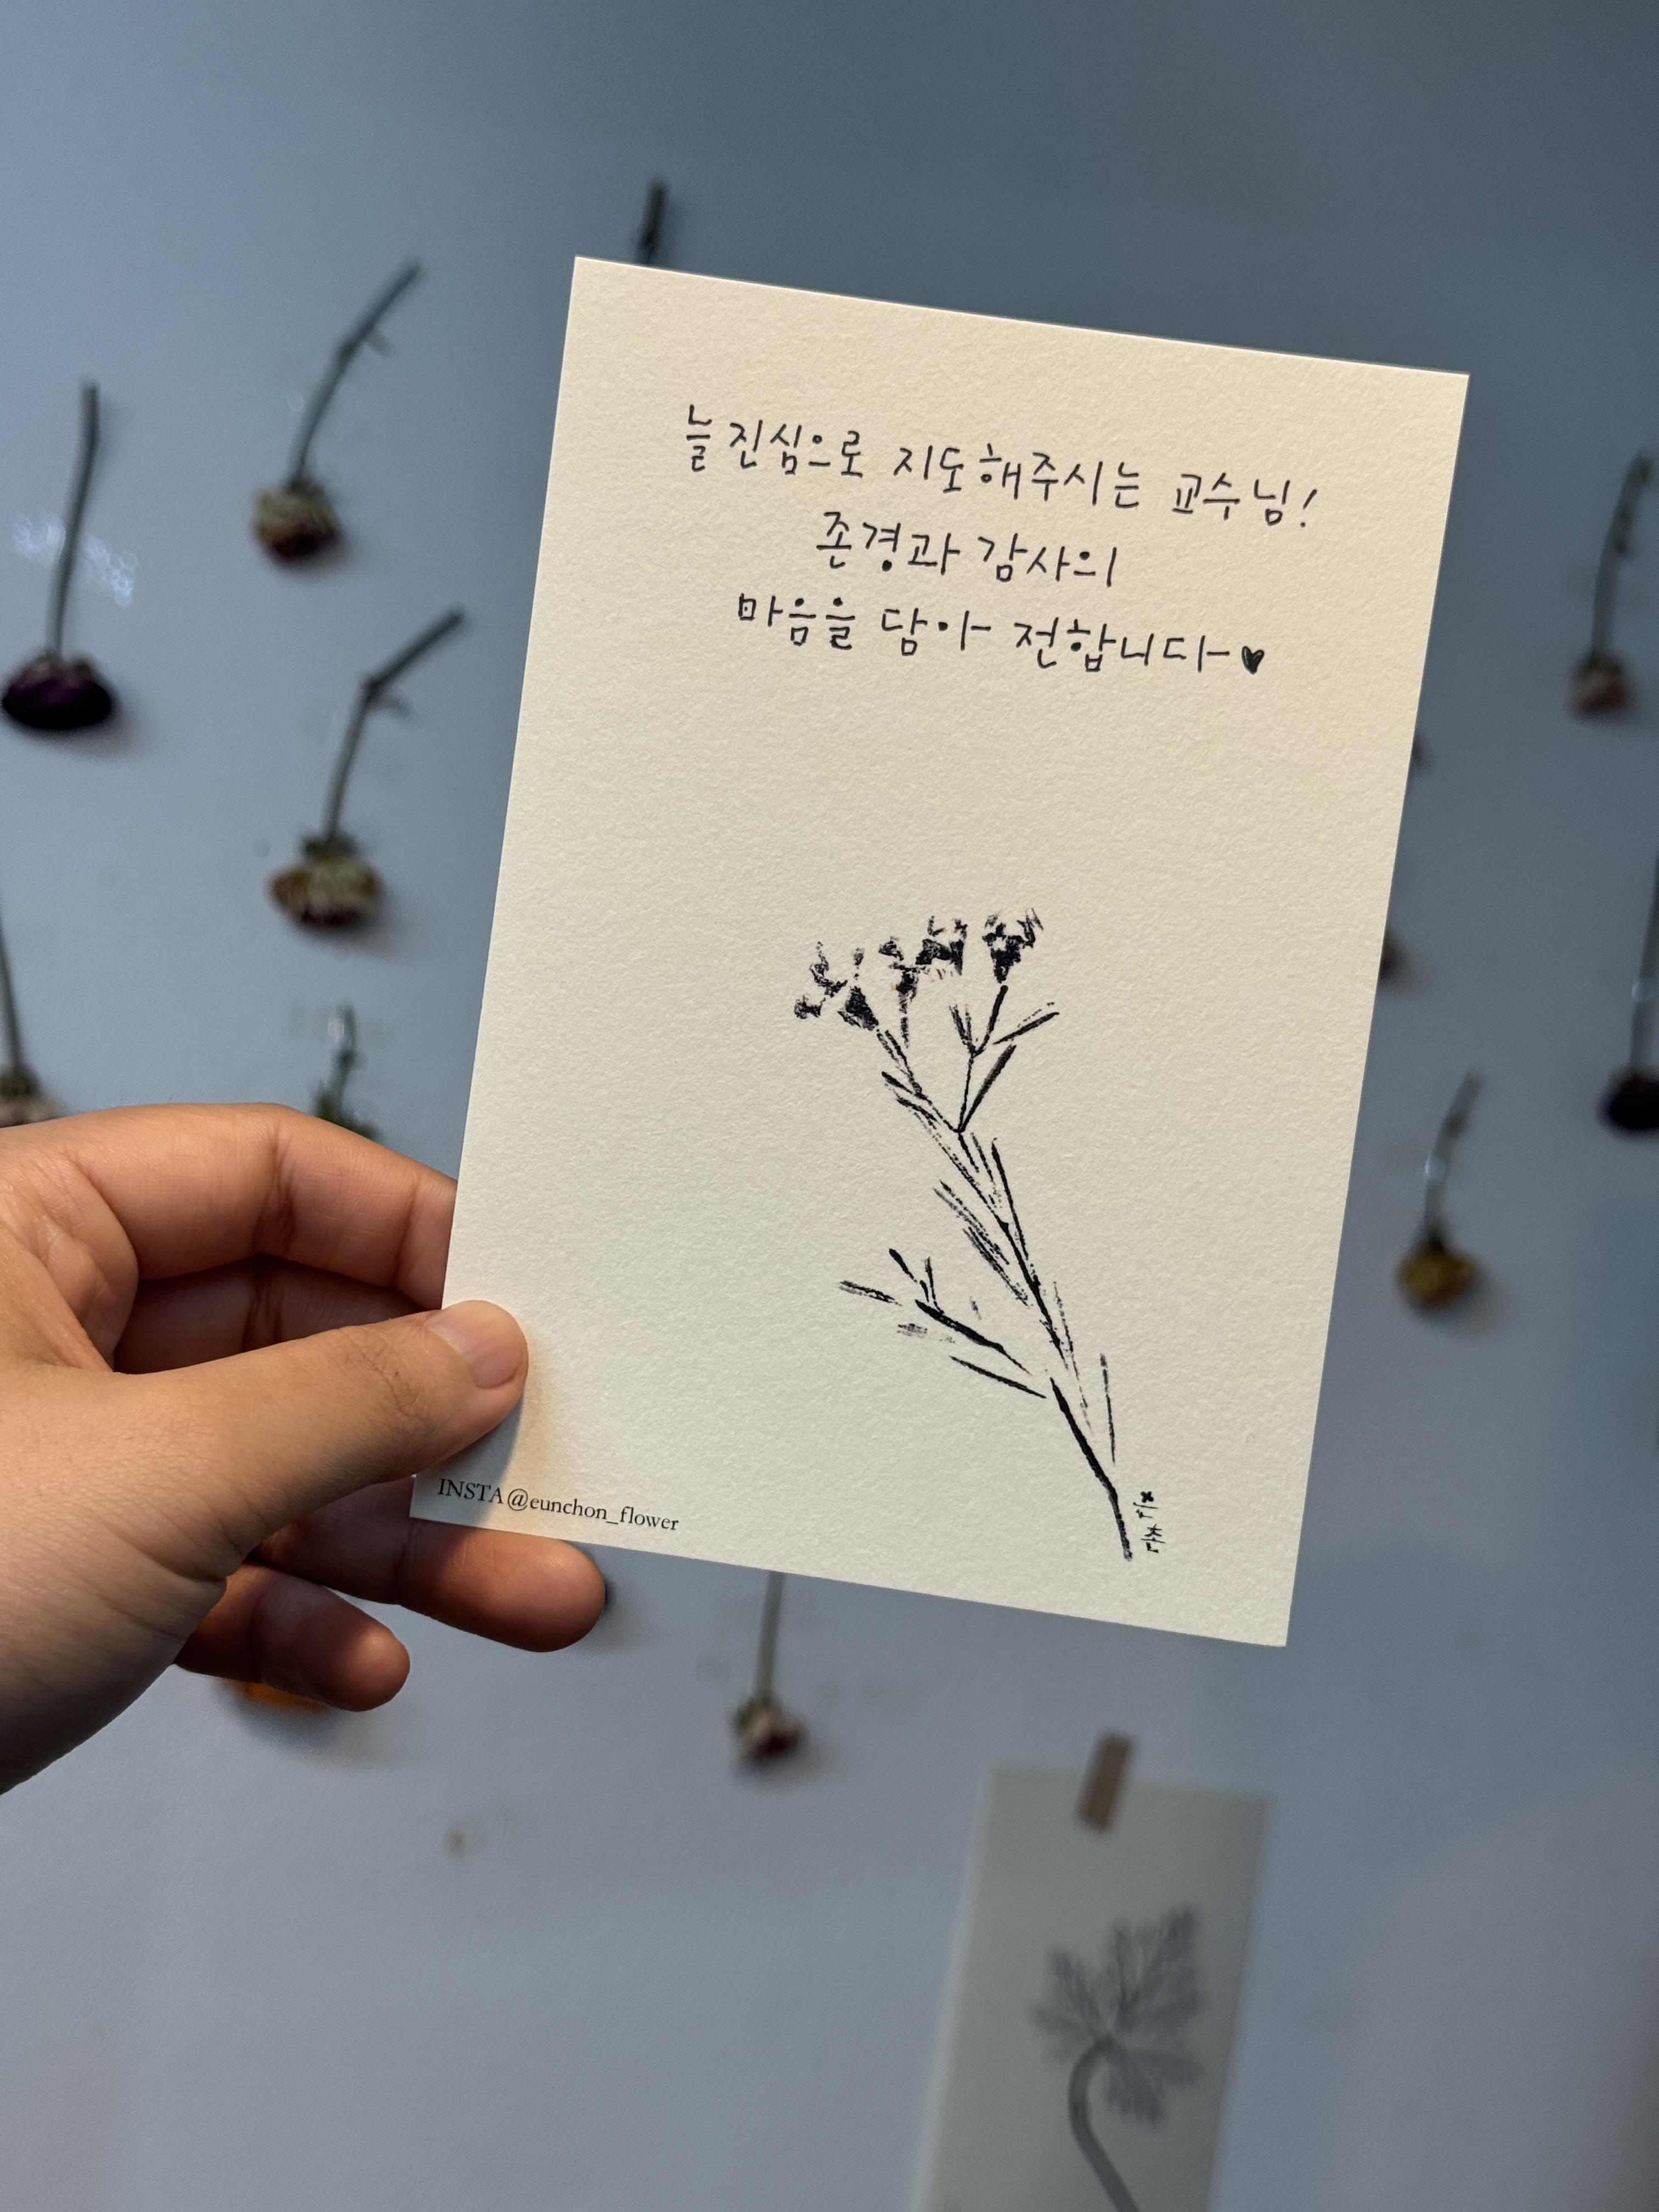 늘 진심으로 지도해주시는 교수님!
존경과 감사의
마음을 담아 전합니다♥
INSTA@eunchon_flower